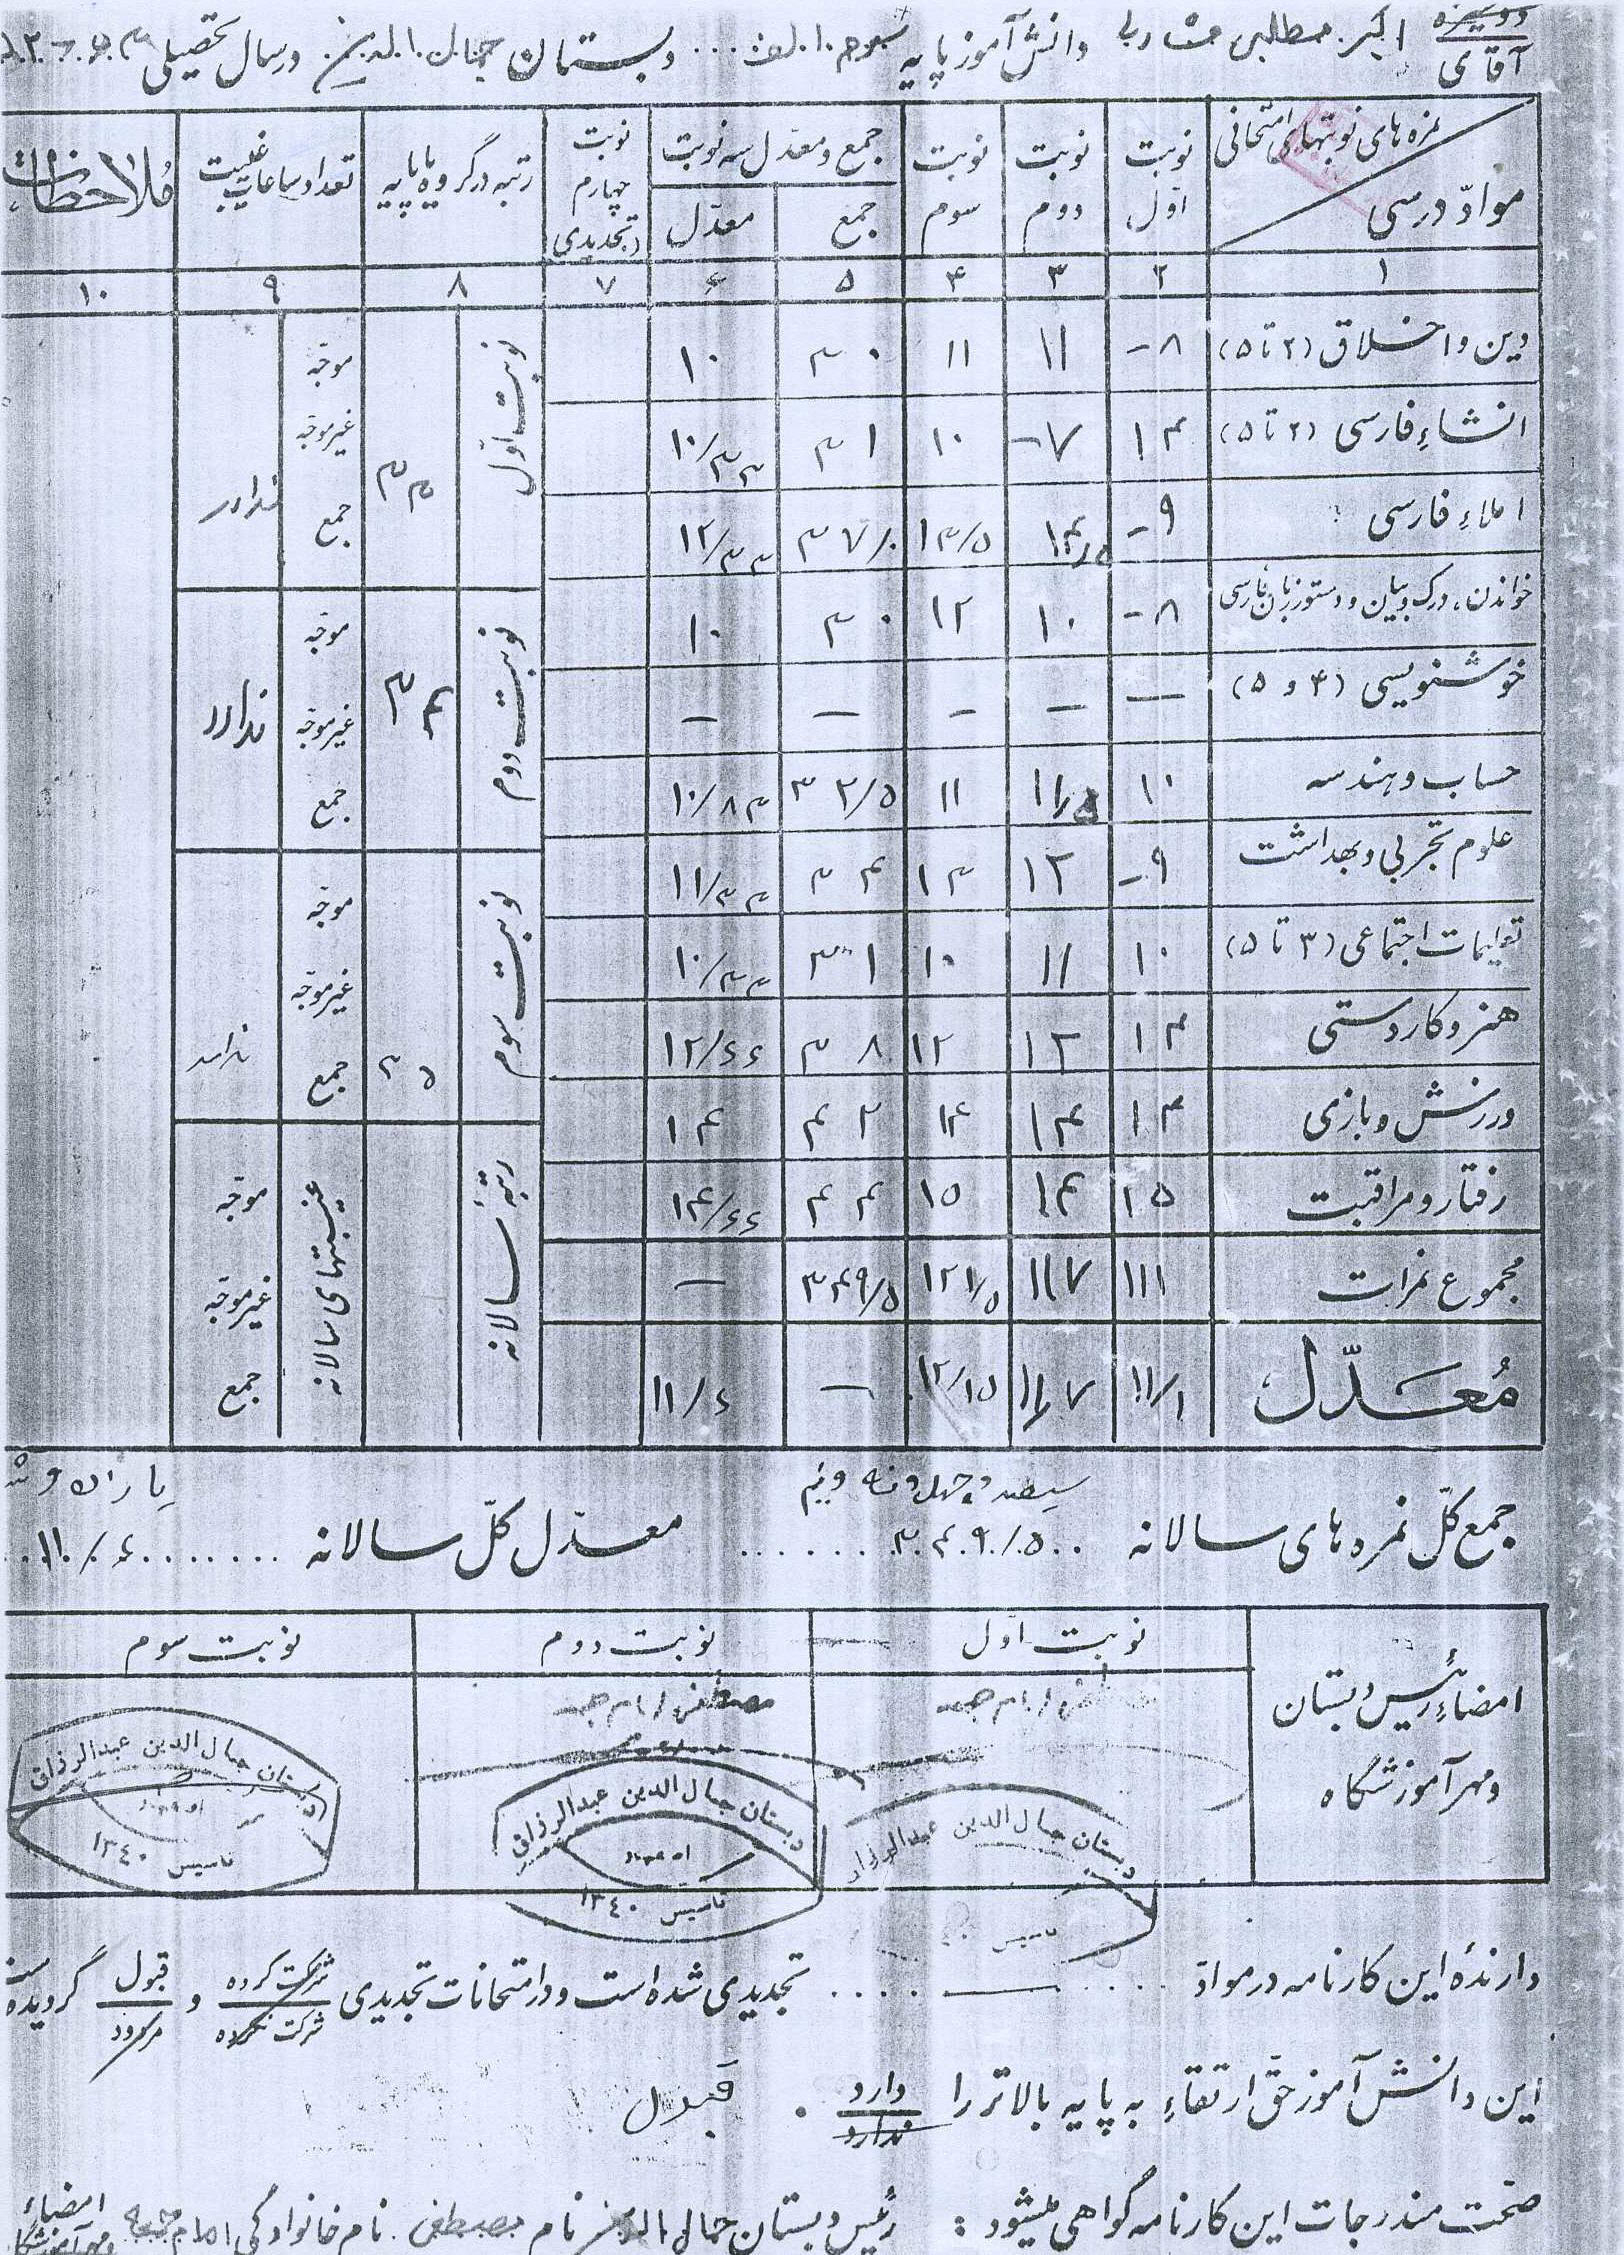 دوشیزه
آقای اکبر مطلبی دانش آموز پایه سوم الف دبستان جمال الدین در سال تحصیلی
نمره های نوبتهای امتحانی
موادّ درسی نوبت اوّل نوبت دوم نوبت سوم جمع و معدّل سه نوبت جمع معدّل نوبت چهارم (تجدیدی) رتبه در گروه یا پایه تعداد ساعات غیبت مُلاحظات
۱ ۲ ۳ ۴ ۵ ۶ ۷ ۸ ۹ ۱۰
دین و اخلاق (۲ تا ۵) ۸- ۱۱ ۱۱ ۳۰ ۱۰
انشاءِ فارسی (۲ تا ۵) ۱۴ ۷- ۱۰ ۳۱ ۱۰/۳۳
املاءِ فارسی ۹- ۱۴/۵ ۱۳/۵ ۳۷/۰ ۱۲/۳۳
خواندن، درک و بیان و دستور زبان فارسی ۸- ۱۰ ۱۲ ۳۰ ۱۰
خوشنویسی (۴ و ۵) — — — — —
حساب و هندسه ۱۰ ۱۱/۵ ۱۱ ۳۲/۵ ۱۰/۸۳
علوم تجربی و بهداشت ۹- ۱۲ ۱۳ ۳۴ ۱۱/۳۳
تعلیمات اجتماعی (۳ تا ۵) ۱۰ ۱۱ ۱۰ ۳۱ ۱۰/۳۳
هنر و کاردستی ۱۴ ۱۲ ۱۲ ۳۸ ۱۲/۶۶
ورزش و بازی ۱۴ ۱۴ ۱۴ ۴۲ ۱۴
رفتار و مراقبت ۱۵ ۱۴ ۱۵ ۴۴ ۱۴/۶۶
مجموع نمرات ۱۱۱ ۱۱۷ ۱۲۱/۵ ۳۴۹/۵ —
مُعَدّل ۱۱/۱ ۱۱/۷ ۱۲/۱۵ — ۱۱/۶
نوبت اوّل ۳۳ موجّه غیرموجّه جمع ندارد
نوبت دوم ۳۴ موجّه غیرموجّه جمع ندارد
نوبت سوم ۳۵ موجّه غیرموجّه جمع ندارد
رتبهٔ سالانه غیبتهای سالانه موجّه غیرموجّه جمع
سیصد و چهل و نه و نیم یازده و
جمع کلّ نمره های سالانه ۳۴۹/۵ معدّل کلّ سالانه ۱۱/۶
امضاءِ رئیس دبستان و مهر آموزشگاه نوبت اوّل نوبت دوم نوبت سوم
مصطفی امام جمعه
دبستان جمال الدین عبدالرزاق
تاسیس ۱۳۴۰
دبستان جمال الدین عبدالرزاق
تاسیس ۱۳۴۰
دبستان جمال الدین عبدالرزاق
تاسیس
دارندهٔ این کارنامه در موادّ — تجدیدی شده است و در امتحانات تجدیدی شرکت کرده شرکت نکرده و قبول مردود گردیده
این دانش آموز حقّ ارتقاءِ به پایه بالاتر را دارد ندارد . قبول
صحّت مندرجات این کارنامه گواهی میشود : رئیس دبستان جمال الدین نام مصطفی نام خانوادگی امام جمعه امضاءِ